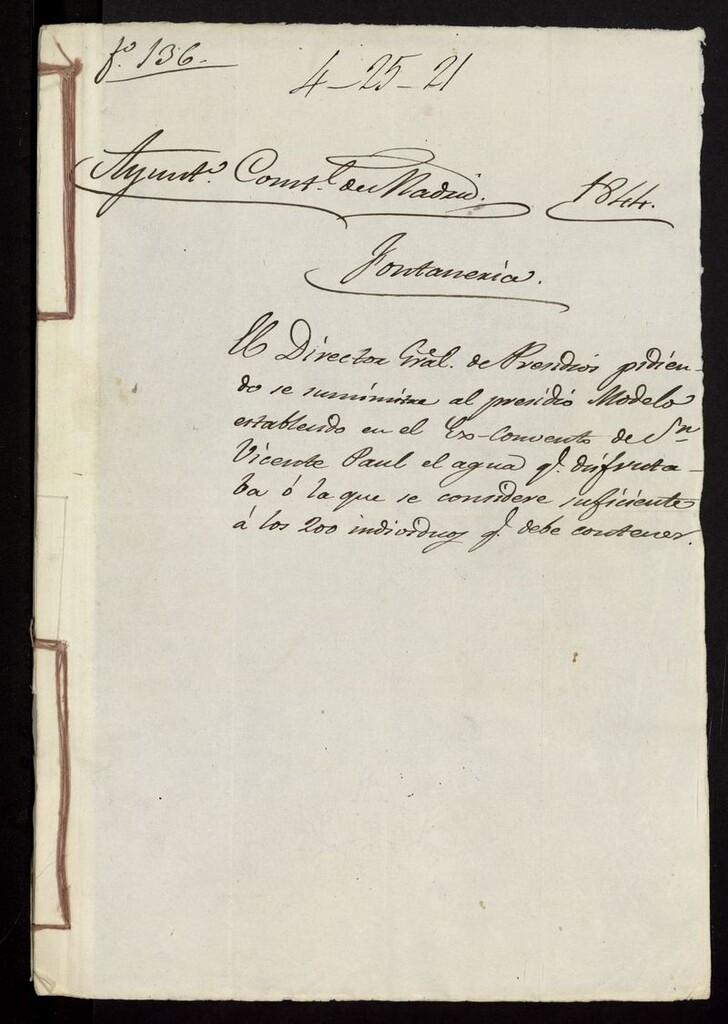 fº. 136.
4-25-21
Ayuntº. Constl. de Madrid. 1844.
Fontanería.
El Director Gral. de Presidios pidien-
do se suministre al presidio Modelo
establecido en el Ex-Convento de Sn
Vicente Paul el agua q. disfruta-
ba ó la que se considere suficiente
á los 200 individuos q. debe contener.